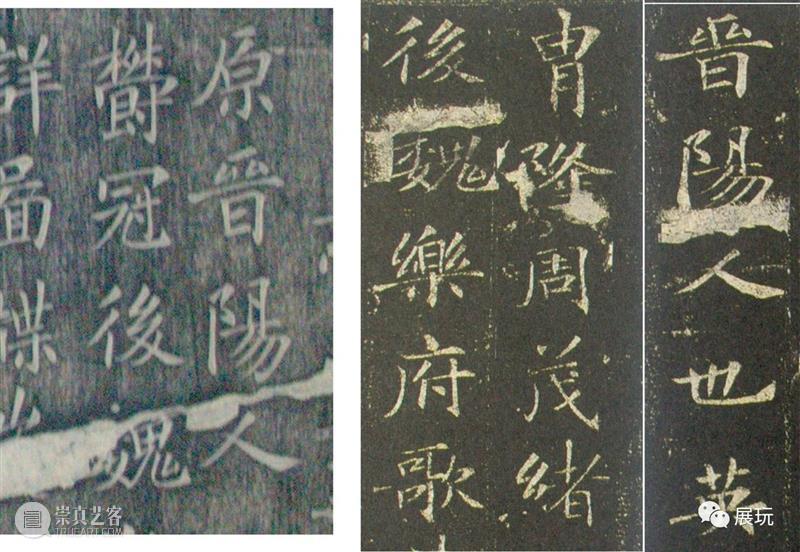 原晋陽人
欝冠後魏
詳啚牒
晋陽人也英
胄隆周茂緒
後魏樂府歌
崇真艺客
展玩